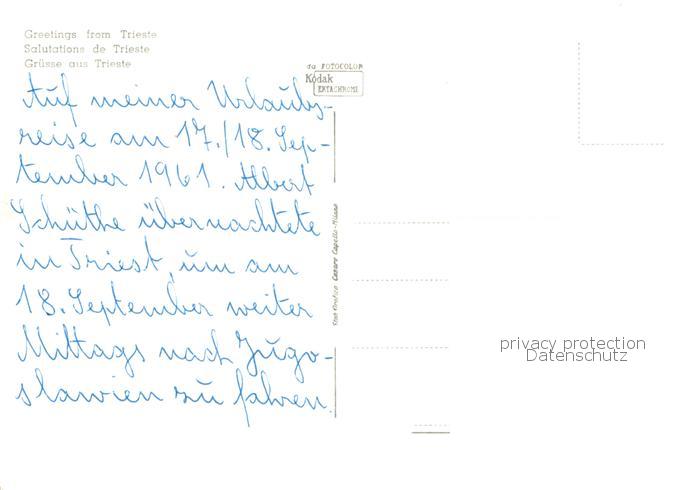 Greetings from Trieste
Salutations de Trieste
Grüsse aus Trieste
da FOTOCOLOR
Kodak
EKTACHROME
Auf meiner Urlaubs-
reise am 17./18. Sep-
tember 1961. Albert
Schüthe übernachtete
in Triest, um am
18. September weiter
Mittags nach Jugo-
slawien zu fahren.
Cesare Capello-Milano
privacy protection
Datenschutz